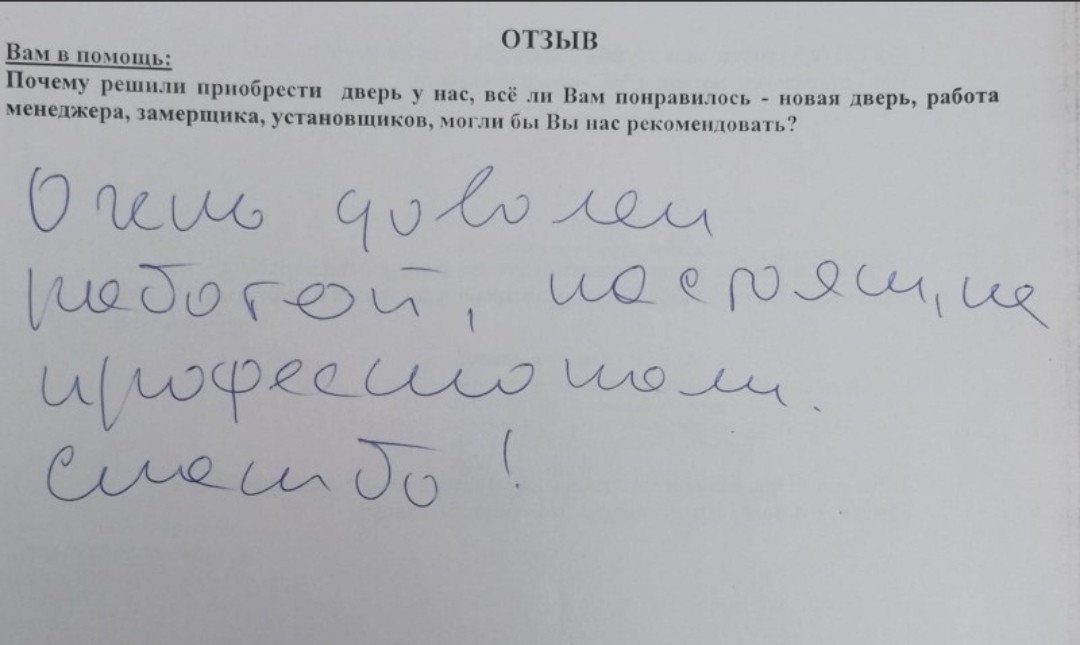 ОТЗЫВ
Вам в помощь:
Почему решили приобрести дверь у нас, всё ли Вам понравилось - новая дверь, работа
менеджера, замерщика, установщиков, могли бы Вы нас рекомендовать?
Очень доволен
работой, настоящие
профессионалы.
Спасибо!